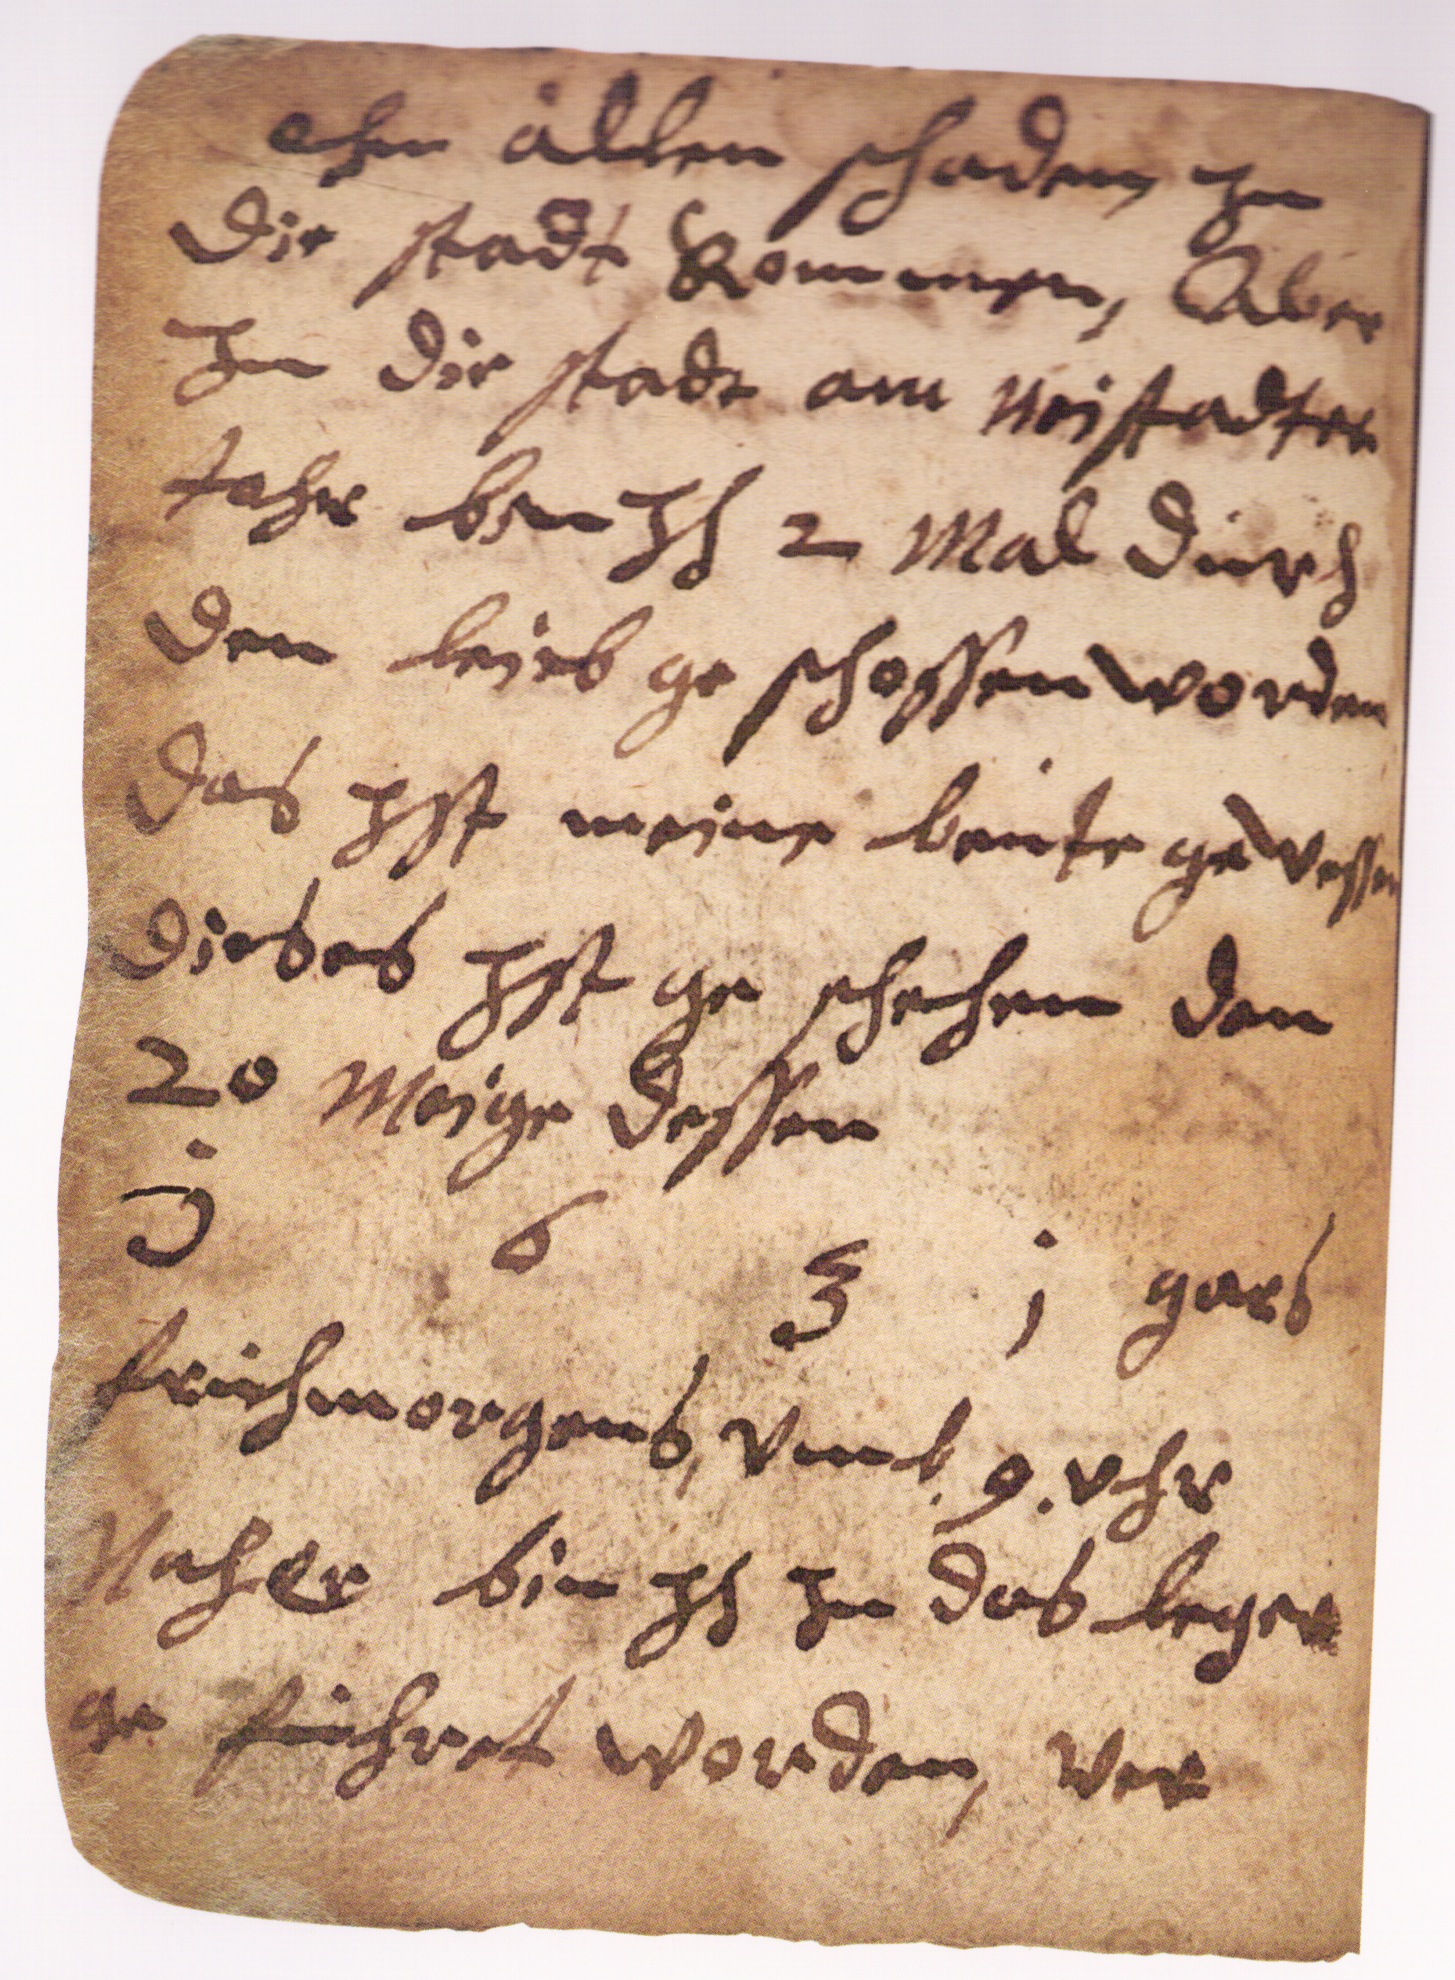 ohn allen schaden, In
die stadt kommen, Aber
In die stadt am neistadter
tohr bin Ich 2 Mal durch
den leieb ge schossen worden
das Ist meine beute gewessen
dieses Ist ge schehen den
20 Meige dessen
j 6 3 j gars
friehmorgens, vmb. 9. vhr
Naher bin Ich In das leger
ge fuhret worden, ver